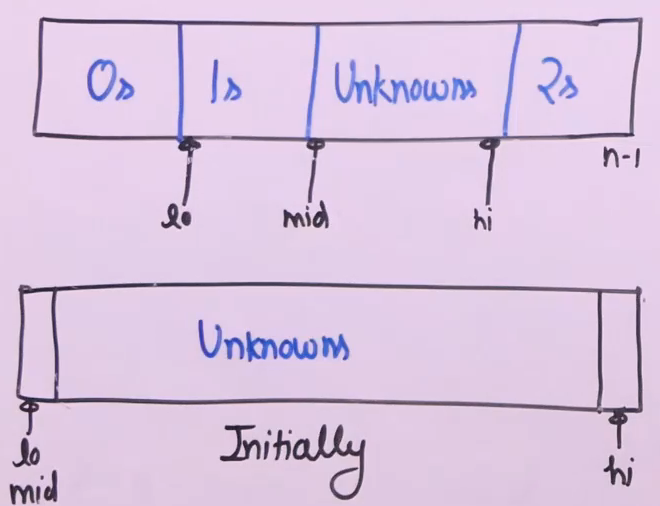 0s 1s Unknowns 2s
n-1
lo mid hi
Unknowns
lo
mid
Initially
hi